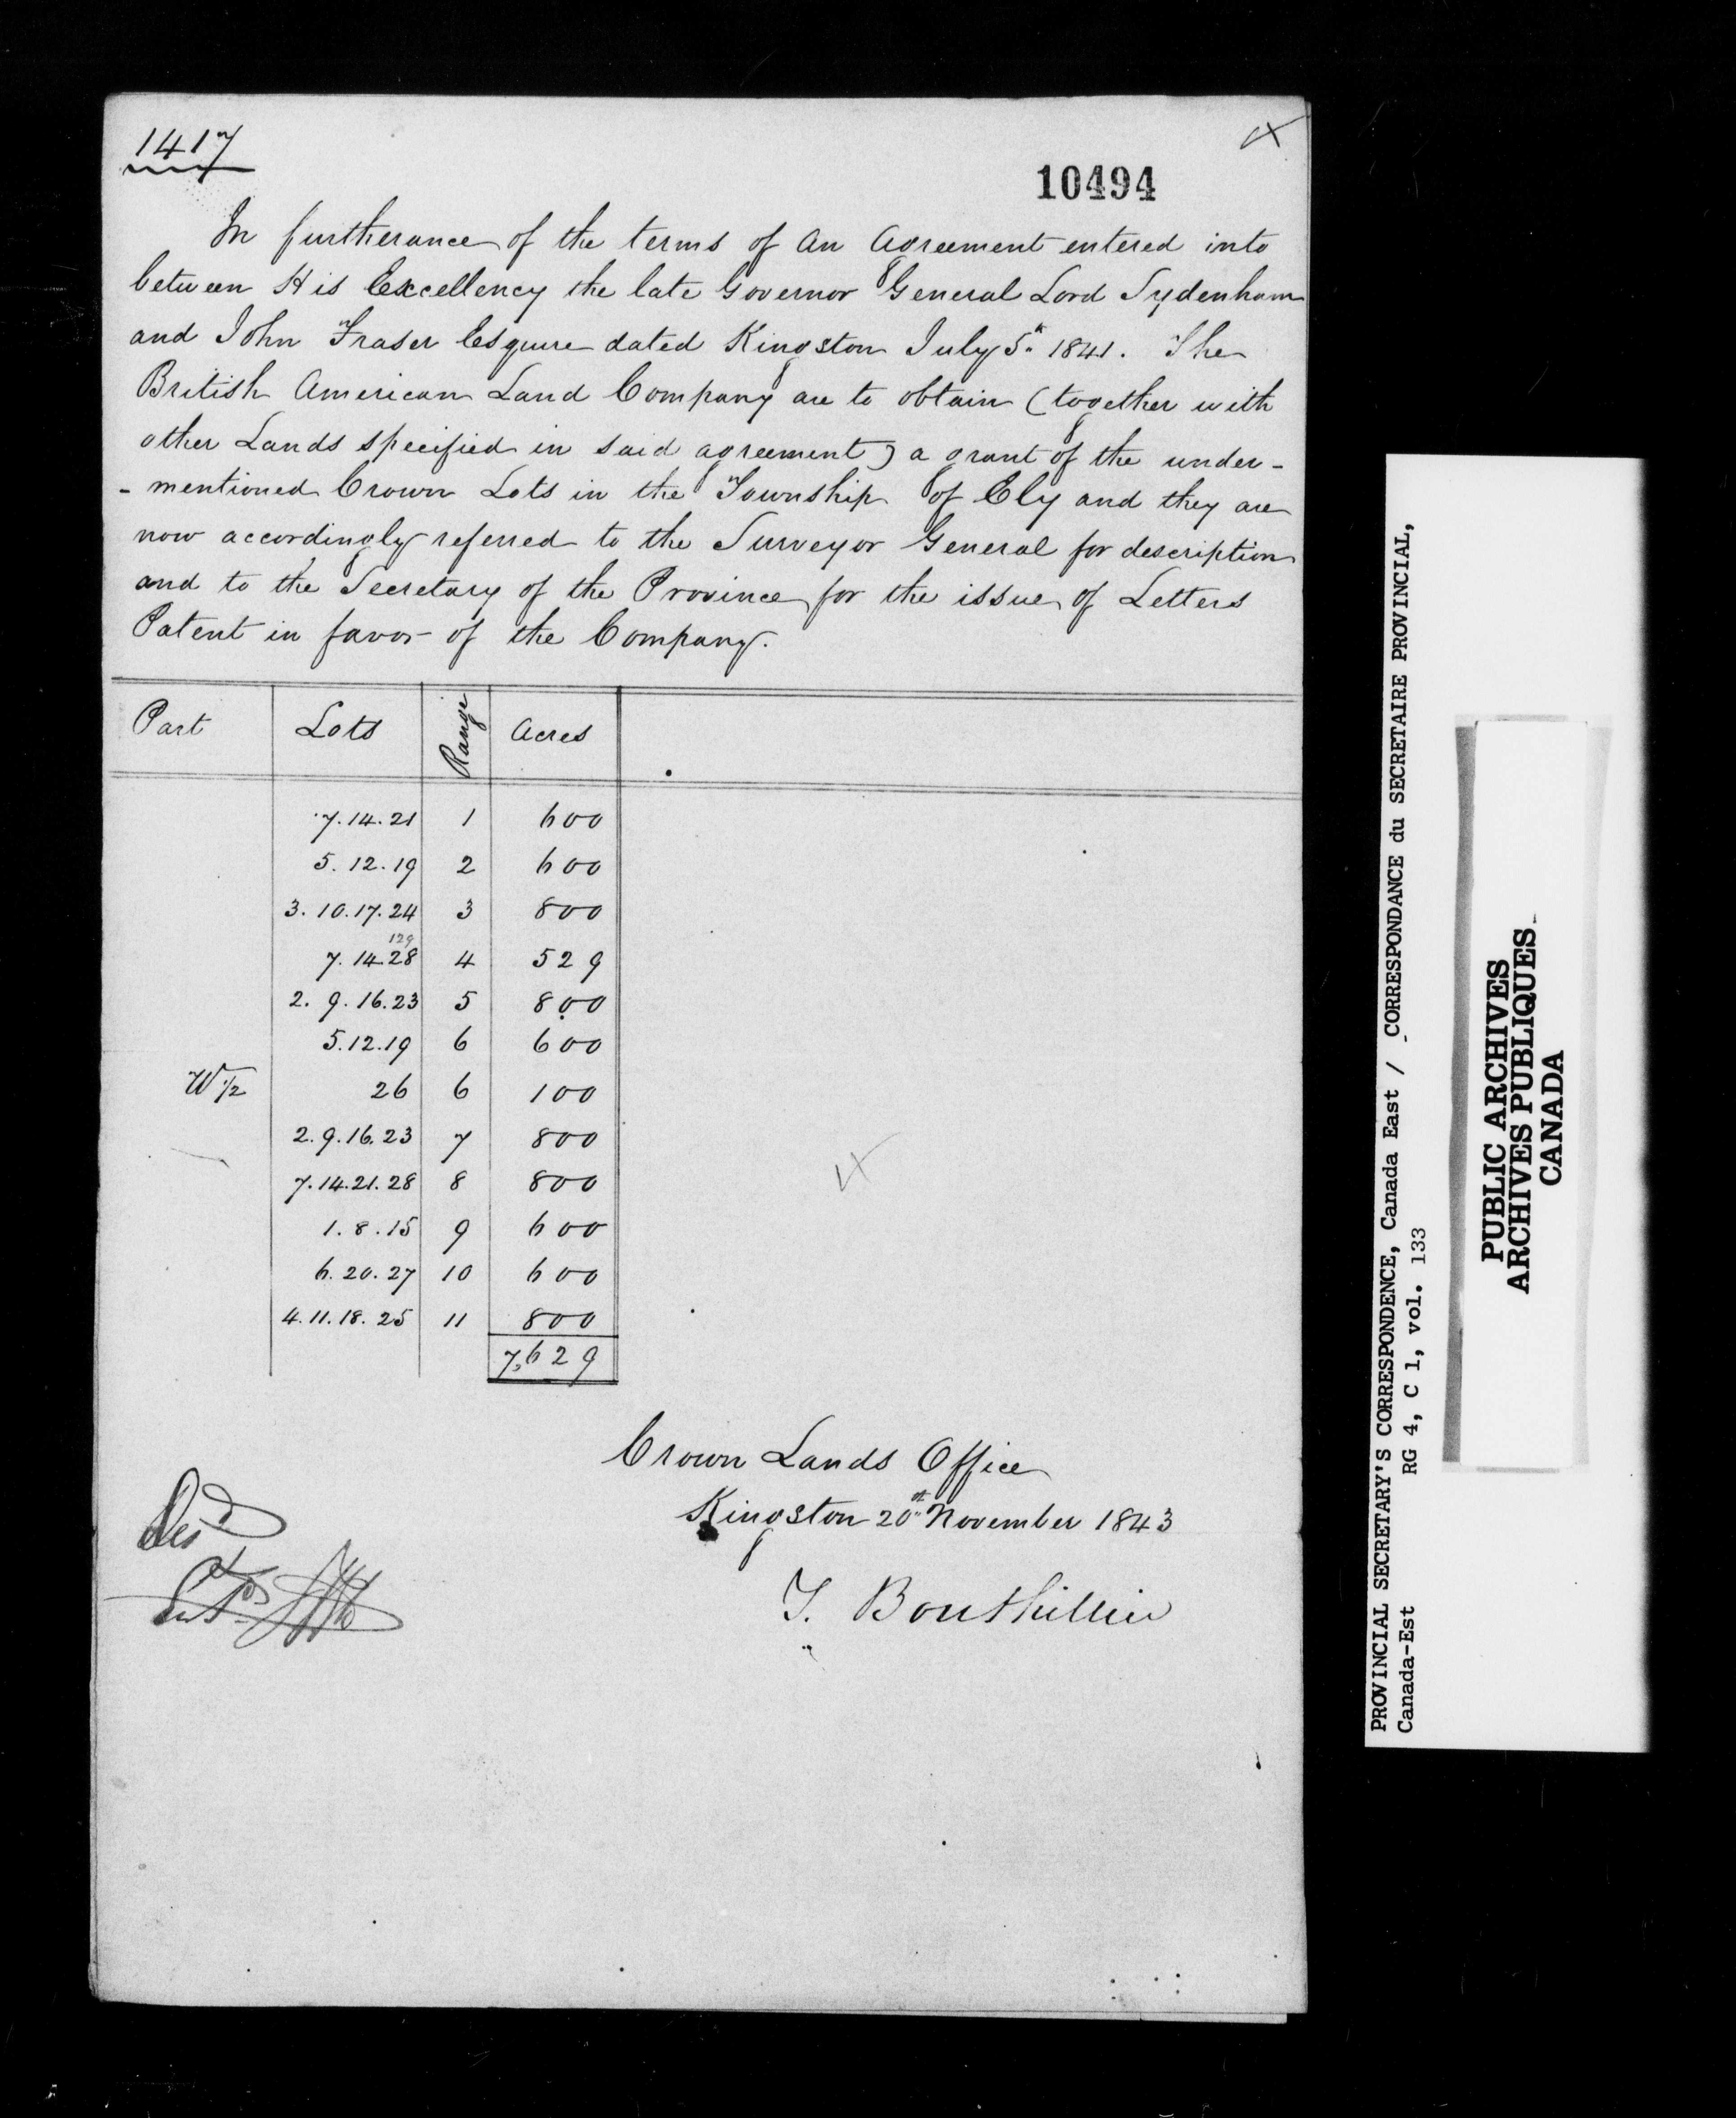 1417
10494
In furtherance of the terms of an Agreement entered into
between His Excellency the late Governor General Lord Sydenham
and John Fraser Esquire dated Kingston July 5th 1841. The
British American Land Company are to obtain (together with
other Lands specified in said agreement) a grant of the under-
-mentioned Crown Lots in the Township of Ely and they are
now accordingly referred to the Surveyor General for description
and to the Secretary of the Province for the issue of Letters
Patent in favor of the Company.
Part Lots Range Acres
7.14.21 1 600
5.12.19 2 600
3.10.17.24 3 800
129
7.14.28 4 529
2.9.16.23 5 800
5.12.19 6 600
W 1/2 26 6 100
2.9.16.23 7 800
7.14.21.28 8 800
1.8.15 9 600
6.20.27 10 600
4.11.18.25 11 800
7,629
Crown Lands Office
Kingston 20th November 1843
T. Bouthillier
Desd
PROVINCIAL SECRETARY'S CORRESPONDENCE, Canada East / CORRESPONDANCE du SECRETAIRE PROVINCIAL,
Canada-Est RG 4, C 1, vol. 133
PUBLIC ARCHIVES
ARCHIVES PUBLIQUES
CANADA